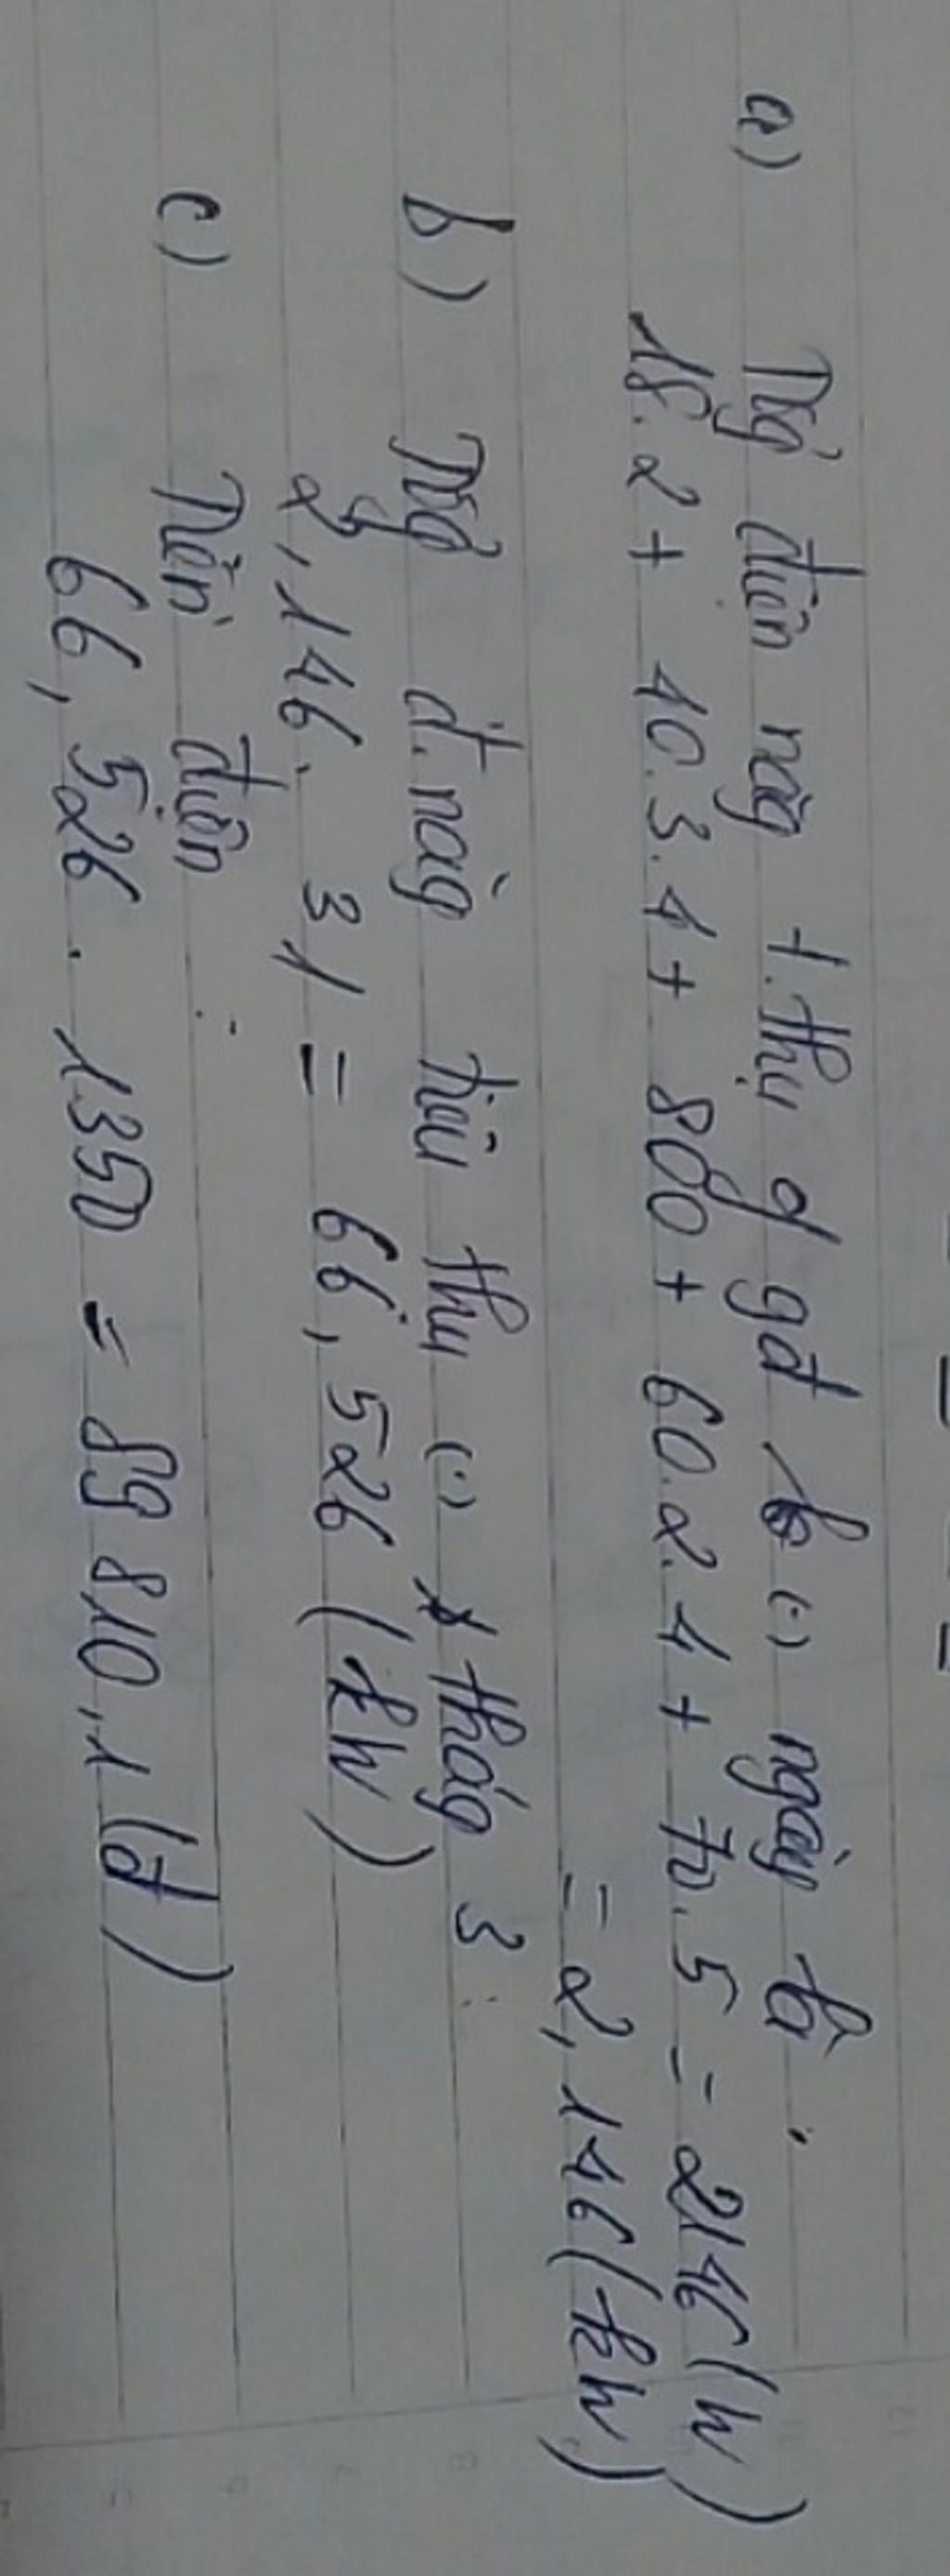 a) Tổg điện năg t.thụ of gđ b (.) ngày là:
18.2 + 40.3.4 + 800 + 60.2.4 + 70.5 = 2146 (W)
= 2,146 (kW)
b) Tổg đ.năg tiêu thụ (.) thág 3:
2,146. 31 = 66,526 (kW)
c) Tiền điện:
66,526. 1350 = 89 810,1 (đ)